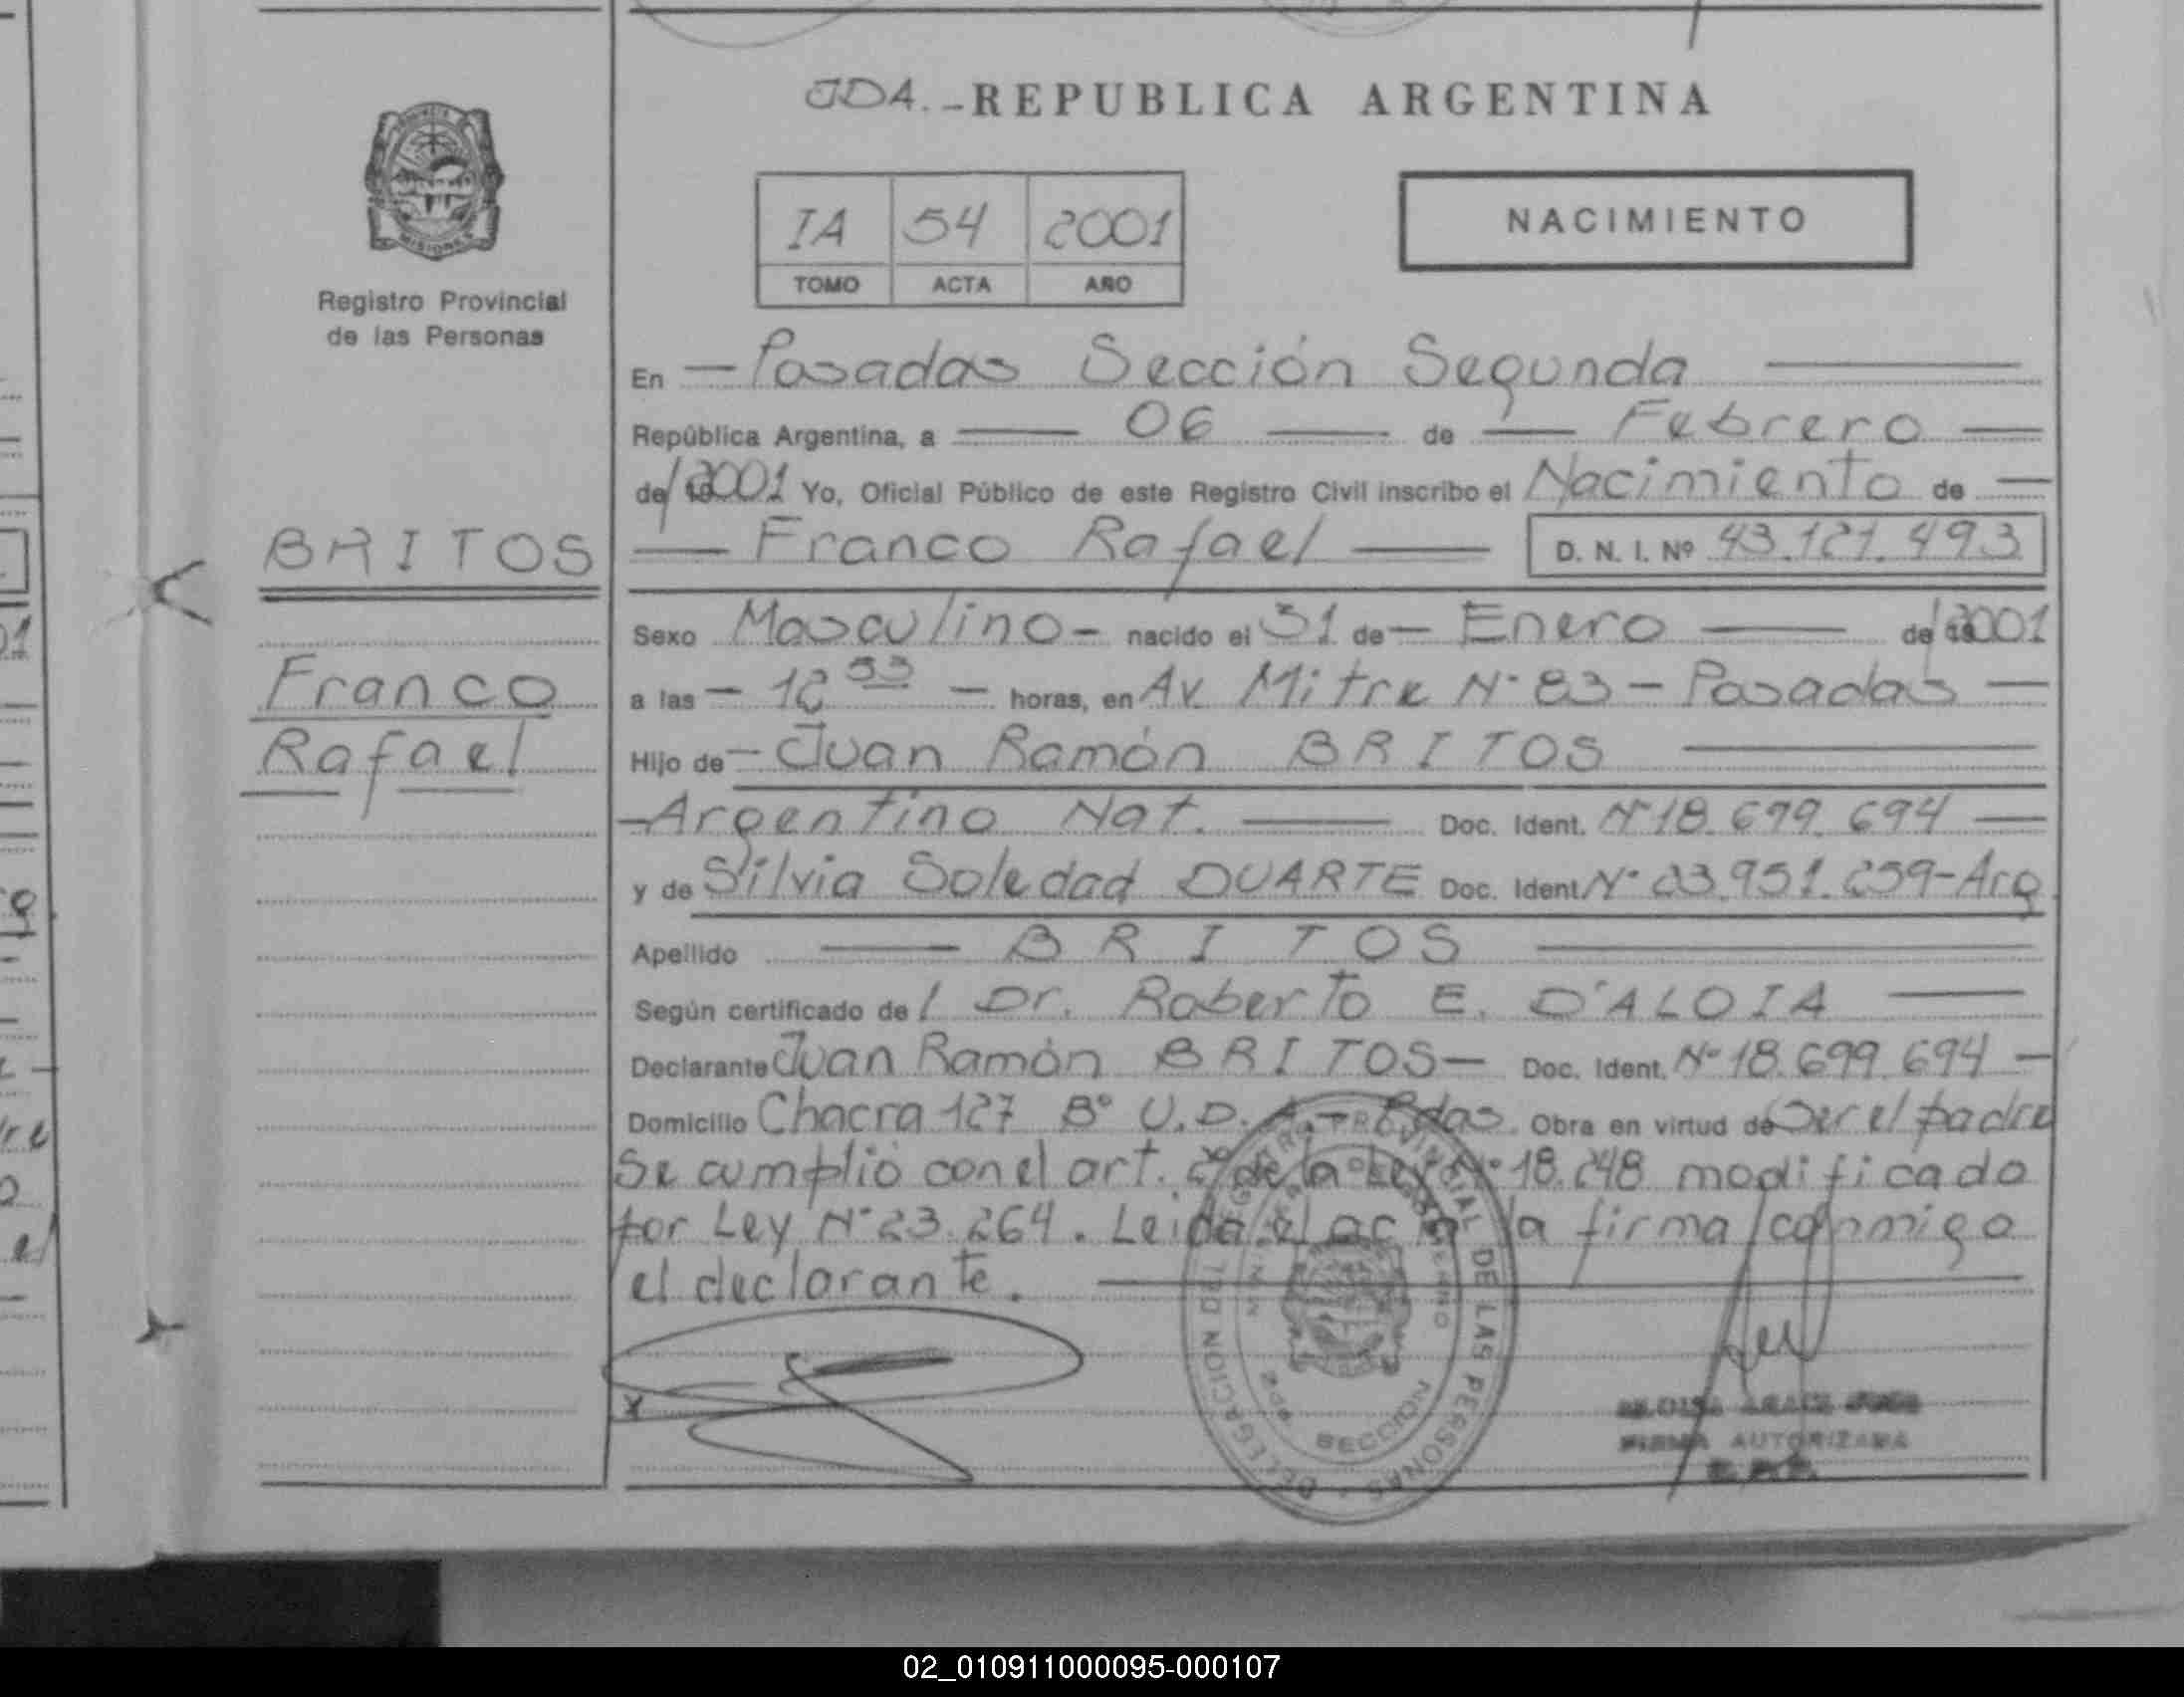 JDA.-REPUBLICA ARGENTINA
MISIONES
Registro Provincial
de las Personas
IA 54 2001
TOMO ACTA AÑO
NACIMIENTO
En — Posadas Sección Segunda —
República Argentina, a — 06 — de — Febrero —
de/2001 Yo, Oficial Público de este Registro Civil inscribo el Nacimiento de —
BRITOS
— Franco Rafael — D. N. I. Nº 43.121.493
Sexo Masculino - nacido el 31 de — Enero — de/2001
Franco
a las — 12 53 — horas, en Av. Mitre N° 83 - Posadas —
Rafael
Hijo de — Juan Ramón BRITOS —
- Argentino Nat. — Doc. Ident. N° 18.699.694 —
y de Silvia Soledad DUARTE Doc. Ident N° 23.951.259-Arg
Apellido — BRITOS —
Según certificado de/ Dr. Roberto E. D'ALOIA —
Declarante Juan Ramón BRITOS — Doc. Ident. N° 18.699.694 —
Domicilio Chacra 127 B° U.D.A - Pdas. Obra en virtud de Ser el padre
Se cumplió con el art. 2° de la Ley N° 18.248 modificado
por Ley N° 23.264. Leída el acta la firma conmigo
el declarante.
x
DELEGACION DEL REGISTRO PROVINCIAL DE LAS PERSONAS
MINISTERIO DE GOBIERNO
2DA SECCION
FIRMA AUTORIZADA